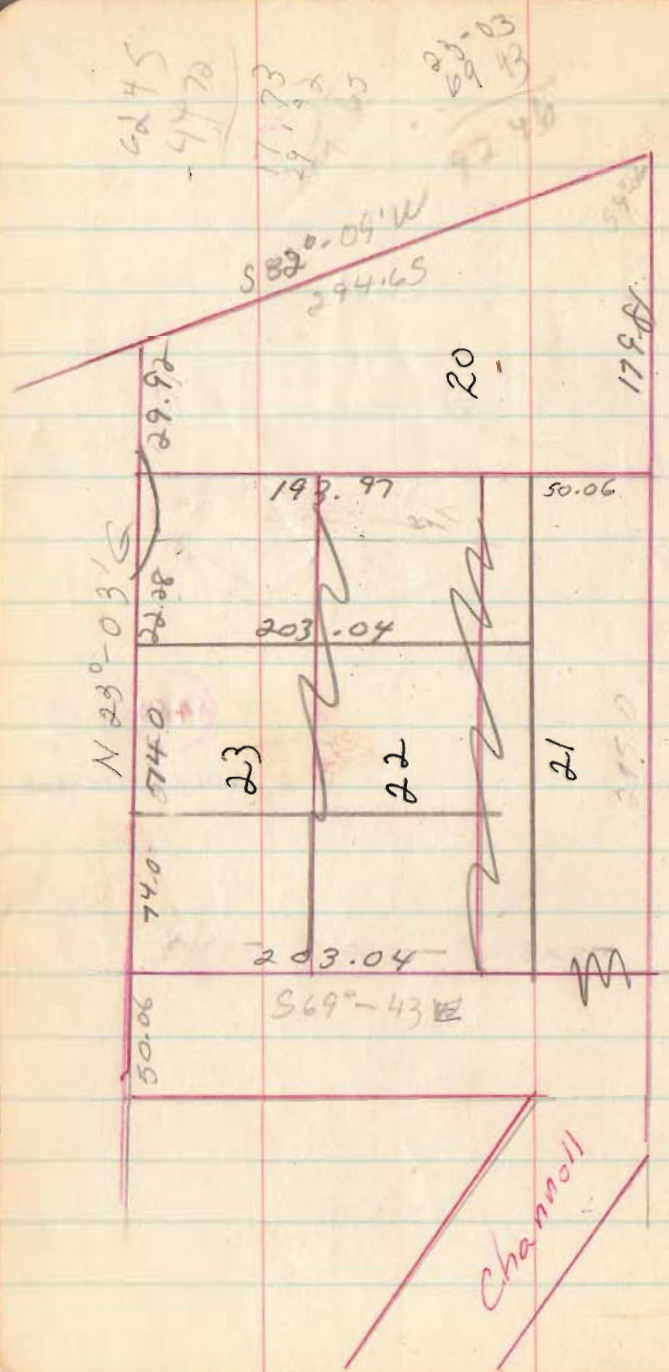 6245
4472
23-03
69 43
92 46
S 82°-05' W
294.65
179.81
29.92
20
193.97
50.06
N 23°-03' E
22.28
203.04
74.0
23
22
21
74.0
203.04
S 69°-43 E
50.06
Channoll